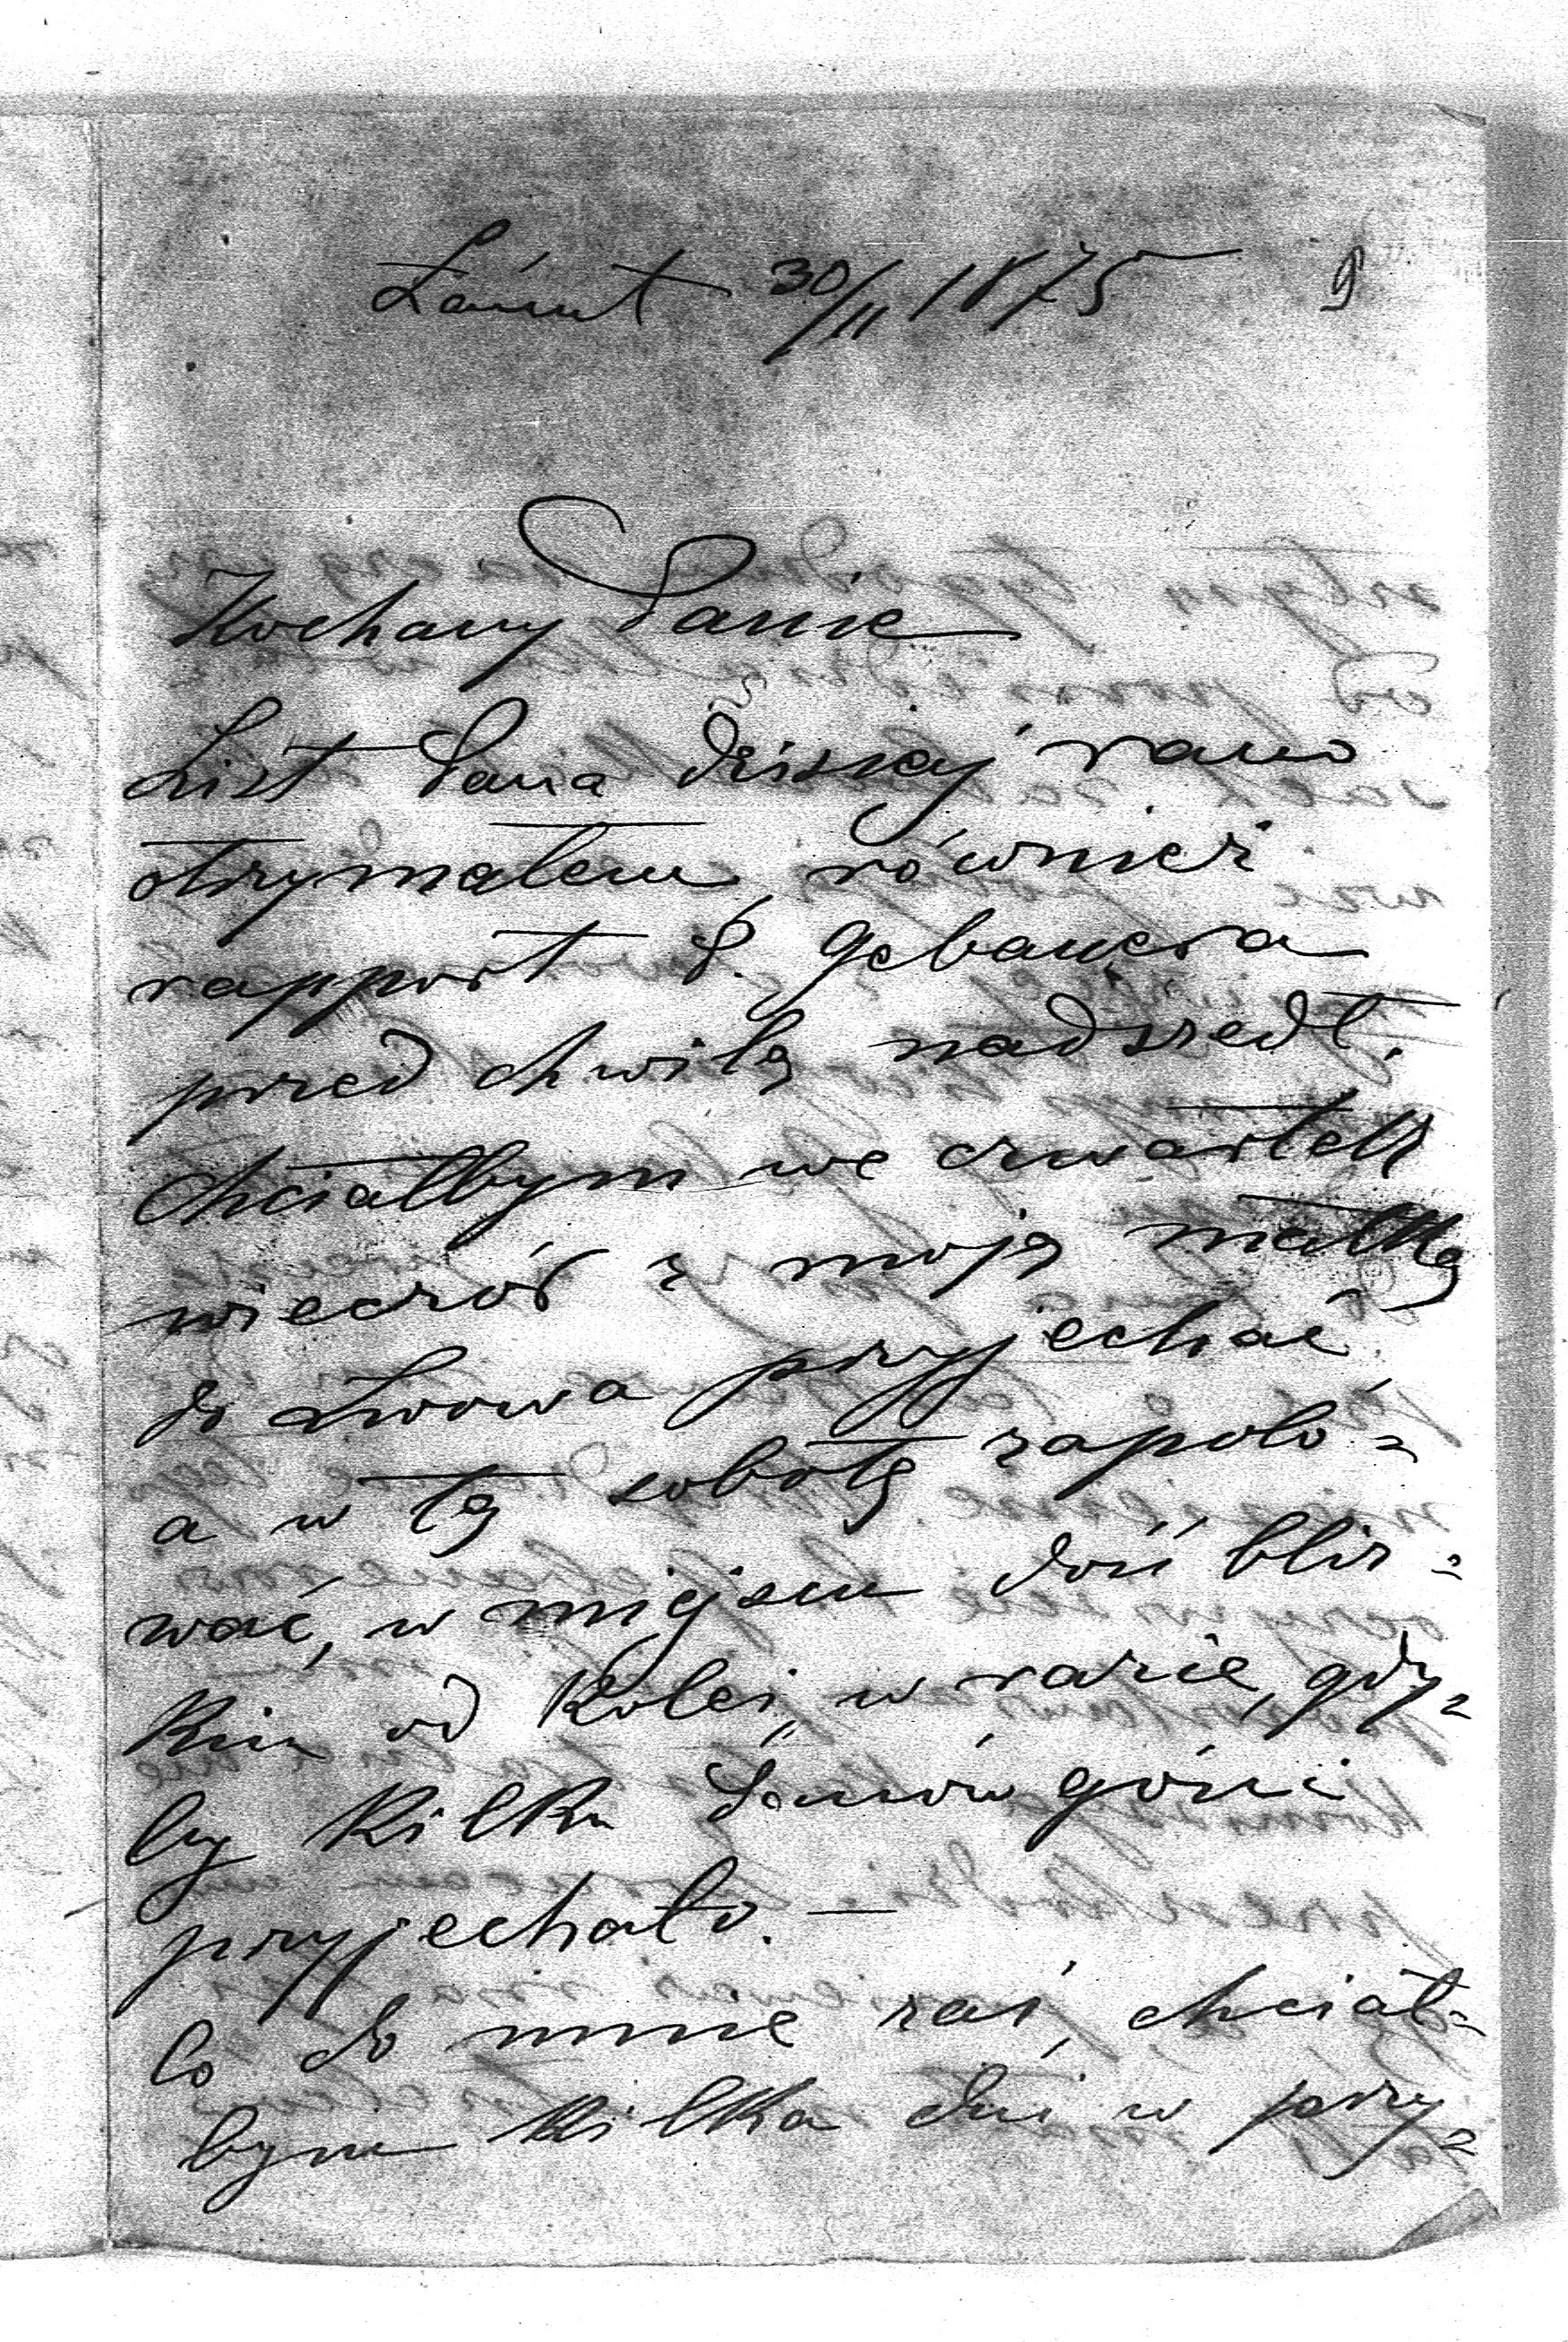 Łańcut 30/11 1875 9
Kochany Panie
List Pana dzisiaj rano
otrzymałem, również
rapport P. Gebauera
przed chwilą nadszedł.
Chciałbym we czwartek
wieczór z moją matką
do Lwowa przyjechać,
a w tę sobotę zapolo=
wać, w miejscu dość bliz=
kim od kolei, w razie, gdy=
by kilku Panów gości
przyjechało. —
Co do mnie zaś, chciał=
bym kilka dni w przy=